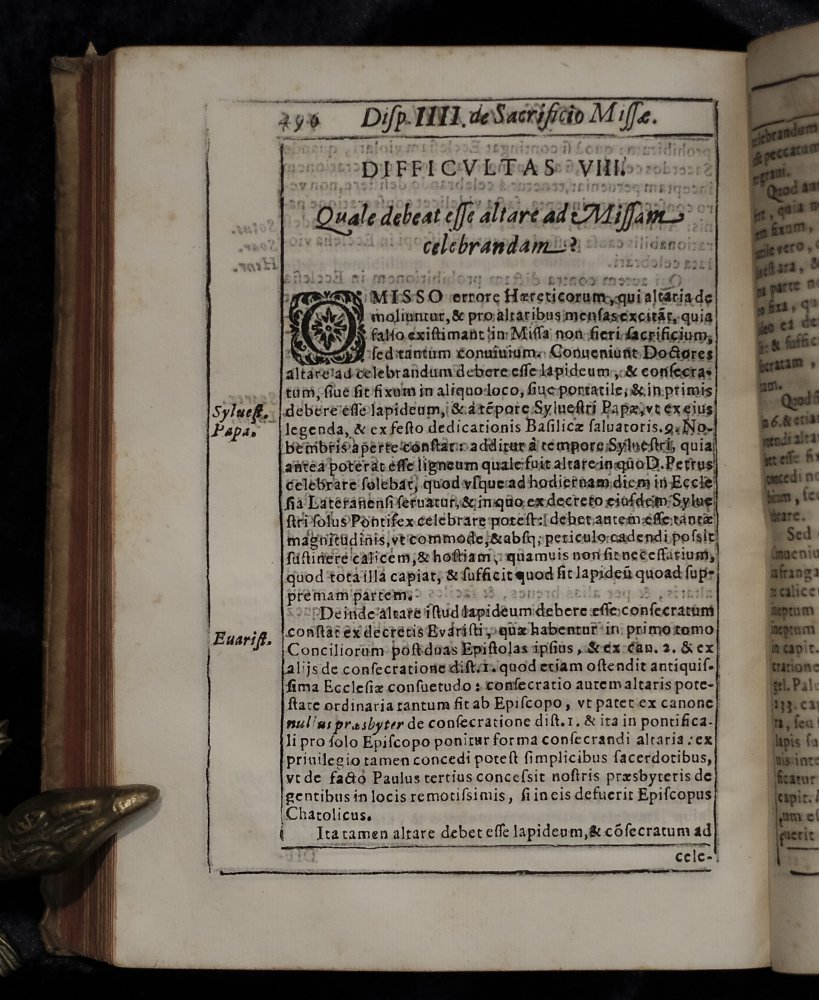 496 Diſp. IIII. de Sacrificio Miſſæ.
DIFFICVLTAS VIII.
Quale debeat eſſe altare ad Miſſam
celebrandam?
OMISSO errore Hæreticorum, qui altaria de
moliuntur, & pro altaribus menſas excitāt, quia
falſo exiſtimant in Miſſa non fieri ſacrificium,
ſed tantum conuiuium. Conueniunt Doctores
altare ad celebrandum debere eſſe lapideum, & conſecra-
tum, ſiue ſit fixum in aliquo loco, ſiue portatile, & in primis
Sylueſt.
Papa.
debere eſſe lapideum, & à tēpore Sylueſtri Papæ, vt ex eius
legenda, & ex feſto dedicationis Baſilicæ ſaluatoris. 9. No-
bembris aperte conſtat: additur â tempore Sylueſtri, quia
antea poterat eſſe ligneum quale fuit altare in quo D. Petrus
celebrare ſolebat, quod vſque ad hodiernam diem in Eccle
ſia Lateranenſi ſeruatur, & in quo ex decreto eiuſdem Sylue
ſtri ſolus Pontifex celebrare poteſt: debet autem eſſe tantæ
magnitudinis, vt commode, & abſq; periculo cadendi poſsit
ſuſtinere calicem, & hoſtiam, quamuis non ſit neceſſarium,
quod tota illa capiat, & ſufficit quod ſit lapideū quoad ſup-
premam partem.
Deinde altare iſtud lapideum debere eſſe conſecratum
Euariſt.
conſtat ex decretis Evariſti, quæ habentur in primo tomo
Conciliorum poſt duas Epiſtolas ipſius, & ex can. 2. & ex
alijs de conſecratione diſt. 1. quod etiam oſtendit antiquiſ-
ſima Eccleſiæ conſuetudo: conſecratio autem altaris pote-
ſtate ordinaria tantum fit ab Epiſcopo, vt patet ex canone
nullus præsbyter de conſecratione diſt. 1. & ita in pontifica-
li pro ſolo Epiſcopo ponitur forma conſecrandi altaria: ex
priuilegio tamen concedi poteſt ſimplicibus ſacerdotibus,
vt de facto Paulus tertius conceſsit noſtris præsbyteris de
gentibus in locis remotiſsimis, ſi in eis defuerit Epiſcopus
Chatolicus.
Ita tamen altare debet eſſe lapideum, & cōſecratum ad
cele-